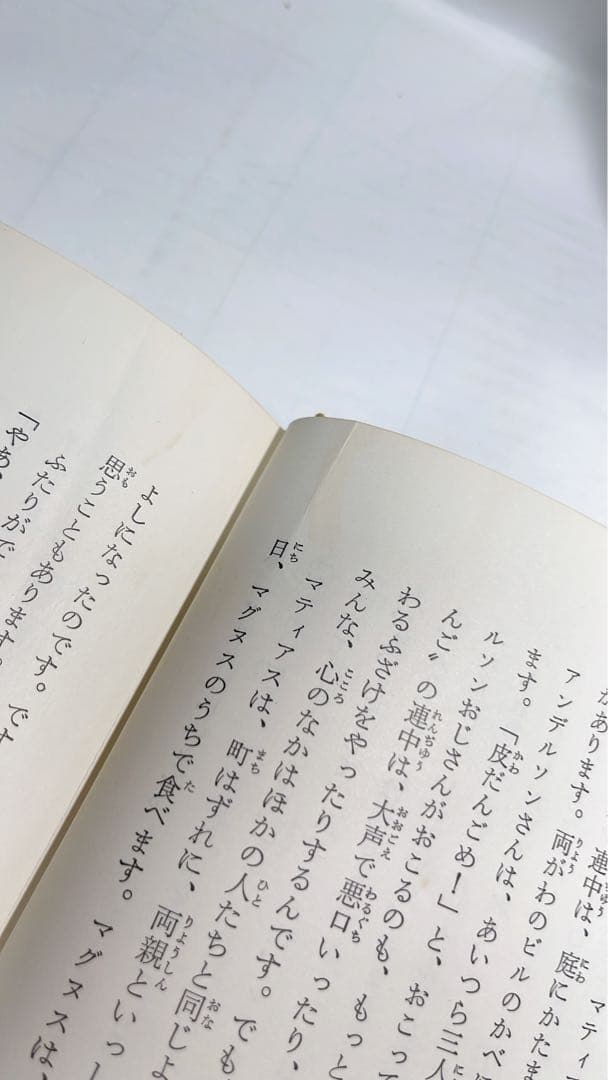 マティ
連中は、庭にかたま
があります。両がわのビルのかべ
アンデルソンさんは、あいつら三人
ます。「皮だんごめ！」と、おこって
ルソンおじさんがおこるのも、もっと
んご〟の連中は、大声で悪口いったり、
わるふざけをやったりするんです。でも
みんな、心のなかはほかの人たちと同じよ
マティアスは、町はずれに、両親といっし
日、マグヌスのうちで食べます。マグヌスは、
よしになったのです。です
思うこともあります。
ふたりがで
「やあ、